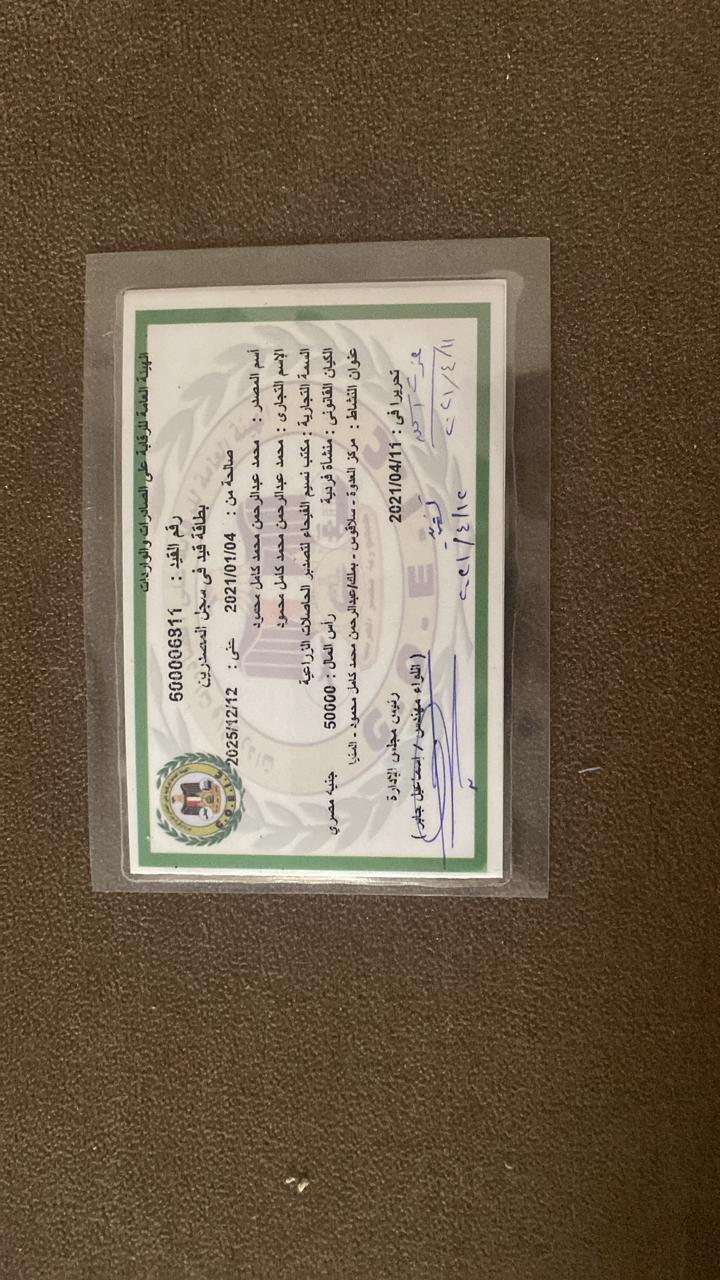 الهيئة العامة للرقابة على الصادرات والواردات
رقم القيد : 600006811
بطاقة قيد فى سجل المصدرين
صالحة من : 2021/01/04 حتى : 2025/12/12
أسم المصدر : محمد عبدالرحمن محمد كامل محمود
الإسم التجارى : محمد عبدالرحمن محمد كامل محمود
السمة التجارية : مكتب نسيم الفيحاء لتصدير الحاصلات الزراعية
الكيان القانونى : منشاة فردية رأس المال : 50000 جنيه مصري
عنوان النشاط : مركز العدوة - سلاقوس - بملك/عبدالرحمن محمد كامل محمود - المنيا
تحريرا فى : 2021/04/11 رئيس مجلس الإدارة
( اللواء مهندس / إسماعيل جابر )
٢٠٢١/٤/١١
٢٠٢١/٤/١٥
G.O.E.I.C